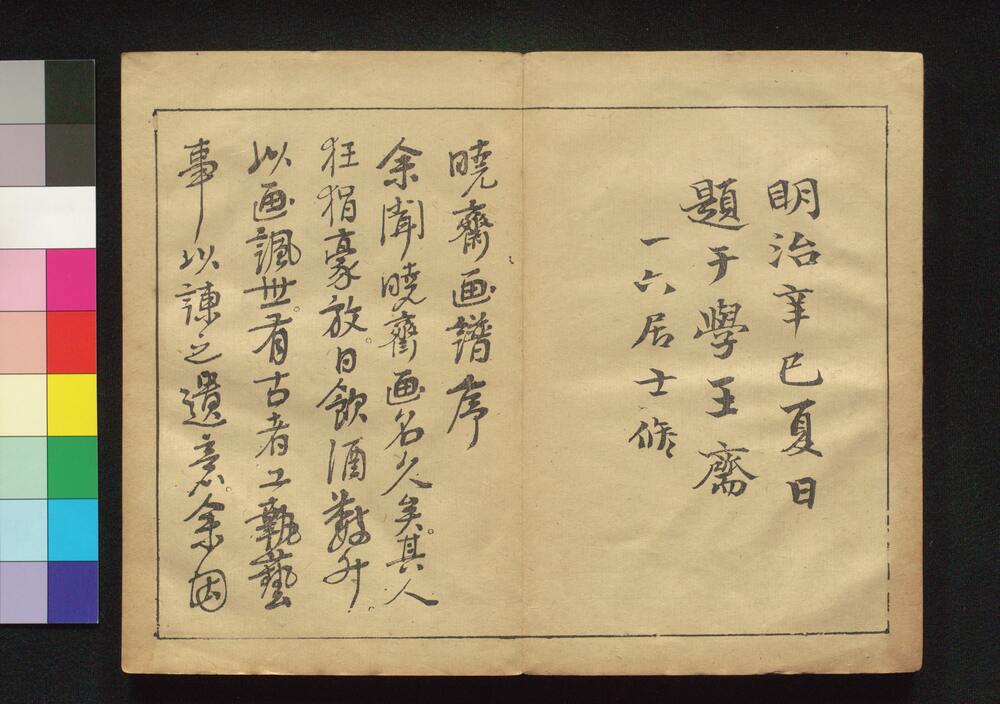 明治辛巳夏日
題于學王齋
一六居士修
暁齋画譜序
余聞暁齋画名久矣。其人
狂狷豪放。日飲酒数升。
以画諷世。有古者工執藝
事以諌之遺意。余因